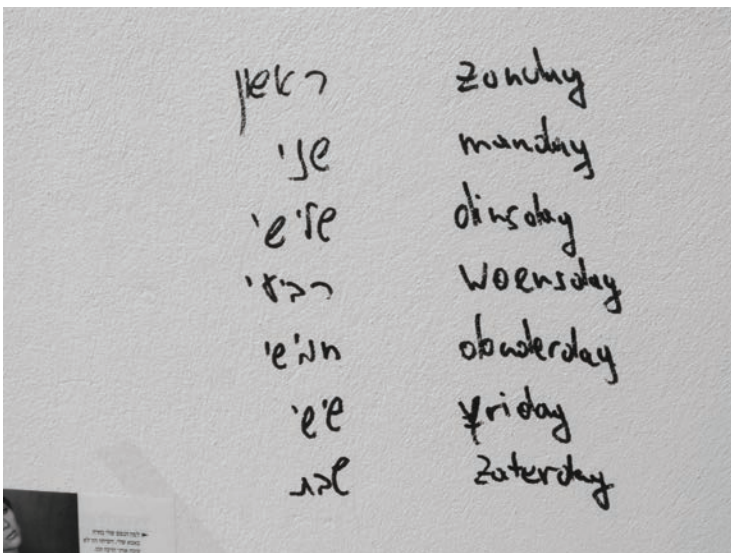 ראשון zonday
שני manday
שלישי dinsday
רביעי woensday
חמישי donderday
שישי vriday
שבת zaterday